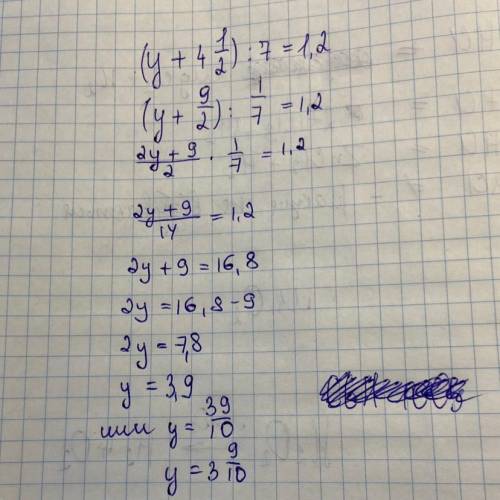 (y + 4 1/2) : 7 = 1,2
(y + 9/2) : 1/7 = 1,2
(2y + 9)/2 · 1/7 = 1,2
(2y + 9)/14 = 1,2
2y + 9 = 16,8
2y = 16,8 - 9
2y = 7,8
y = 3,9
или y = 39/10
y = 3 9/10